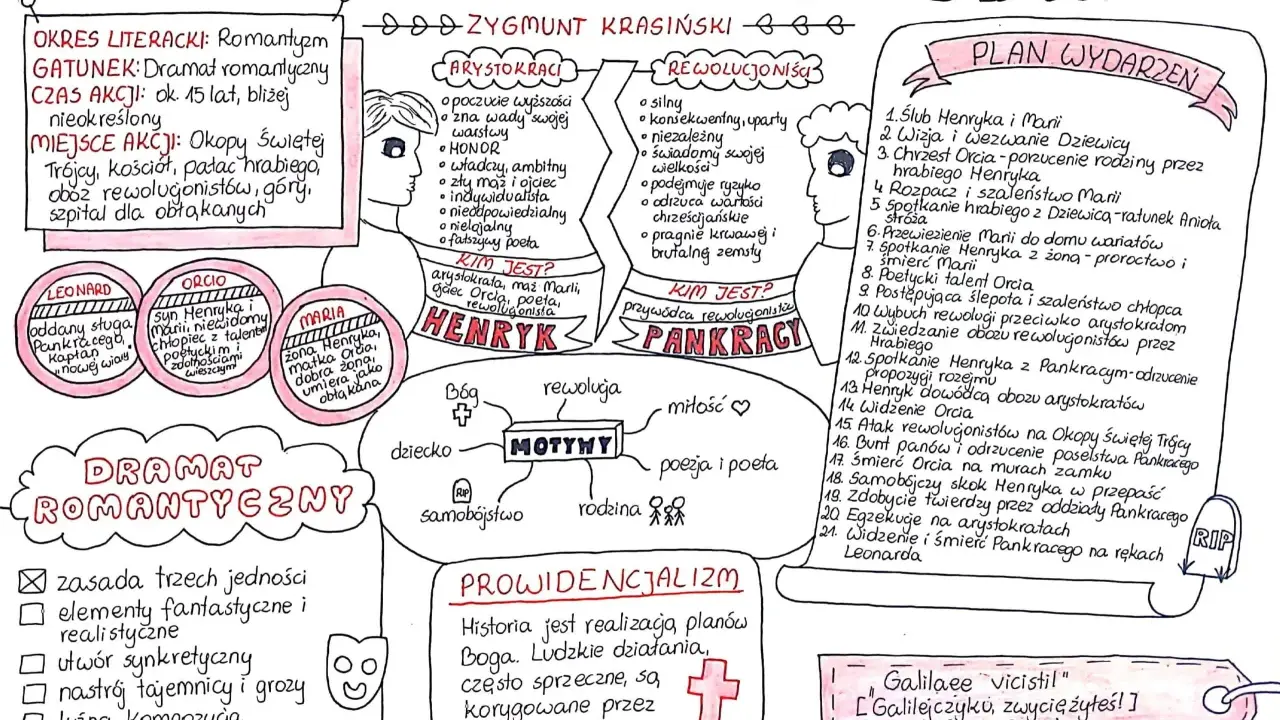 ZYGMUNT KRASIŃSKI
OKRES LITERACKI: Romantyzm
GATUNEK: Dramat romantyczny
CZAS AKCJI: ok. 15 lat, bliżej
nieokreślony
MIEJSCE AKCJI: Okopy Świętej
Trójcy, kościół, pałac hrabiego,
obóz rewolucjonistów, góry,
szpital dla obłąkanych
LEONARD
oddany sługa
Pankracego,
kapłan
"nowej wiary"
ORCIO
syn Henryka i
Marii, niewidomy
chłopiec z talentem
poetyckim i
zdolnościami
wieszczymi
MARIA
żona Henryka,
matka Orcia,
dobra żona,
umiera jako
obłąkana
ARYSTOKRACI
poczucie wyższości
zna wady swojej
warstwy
HONOR
władczy, ambitny
zły mąż i ojciec
indywidualista
nieodpowiedzialny
nielojalny
fałszywy poeta
KIM JEST?
arystokrata, mąż Marii,
ojciec Orcia, poeta,
rewolucjonista
HENRYK
REWOLUCJONIŚCI
silny
konsekwentny, uparty
niezależny
świadomy swojej
wielkości
podejmuje ryzyko
odrzuca wartości
chrześcijańskie
pragnie krwawej i
brutalnej zemsty
KIM JEST?
przywódca rewolucjonistów
PANKRACY
MOTYWY
Bóg
rewolucja
miłość
dziecko
poezja i poeta
RIP
samobójstwo
rodzina
PLAN WYDARZEŃ
1. Ślub Henryka i Marii
2. Wizja i wezwanie Dziewicy
3. Chrzest Orcia - porzucenie rodziny przez
hrabiego Henryka
4. Rozpacz i szaleństwo Marii
5. Spotkanie hrabiego z Dziewicą - ratunek Anioła
stróża
6. Przewiezienie Marii do domu wariatów
7. Spotkanie Henryka z żoną - proroctwo i
śmierć Marii
8. Poetycki talent Orcia
9. Postępująca ślepota i szaleństwo chłopca
10. Wybuch rewolucji przeciwko arystokratom
11. Zwiedzanie obozu rewolucjonistów przez
Hrabiego
12. Spotkanie Henryka z Pankracym - odrzucenie
propozycji rozejmu
13. Henryk dowódcą obozu arystokratów
14. Widzenie Orcia
15. Atak rewolucjonistów na Okopy Świętej Trójcy
16. Bunt panów i odrzucenie poselstwa Pankracego
17. Śmierć Orcia na murach zamku
18. Samobójczy skok Henryka w przepaść
19. Zdobycie twierdzy przez oddziały Pankracego
20. Egzekucje na arystokratach
21. Widzenie i śmierć Pankracego na rękach
Leonarda
RIP
DRAMAT
ROMANTYCZNY
zasada trzech jedności
elementy fantastyczne i
realistyczne
utwór synkretyczny
nastrój tajemnicy i grozy
PROWIDENCJALIZM
Historia jest realizacją planów
Boga. Ludzkie działania,
często sprzeczne, są
korygowane przez
"Galilaee vicisti!"
["Galilejczyku, zwyciężyłeś!]